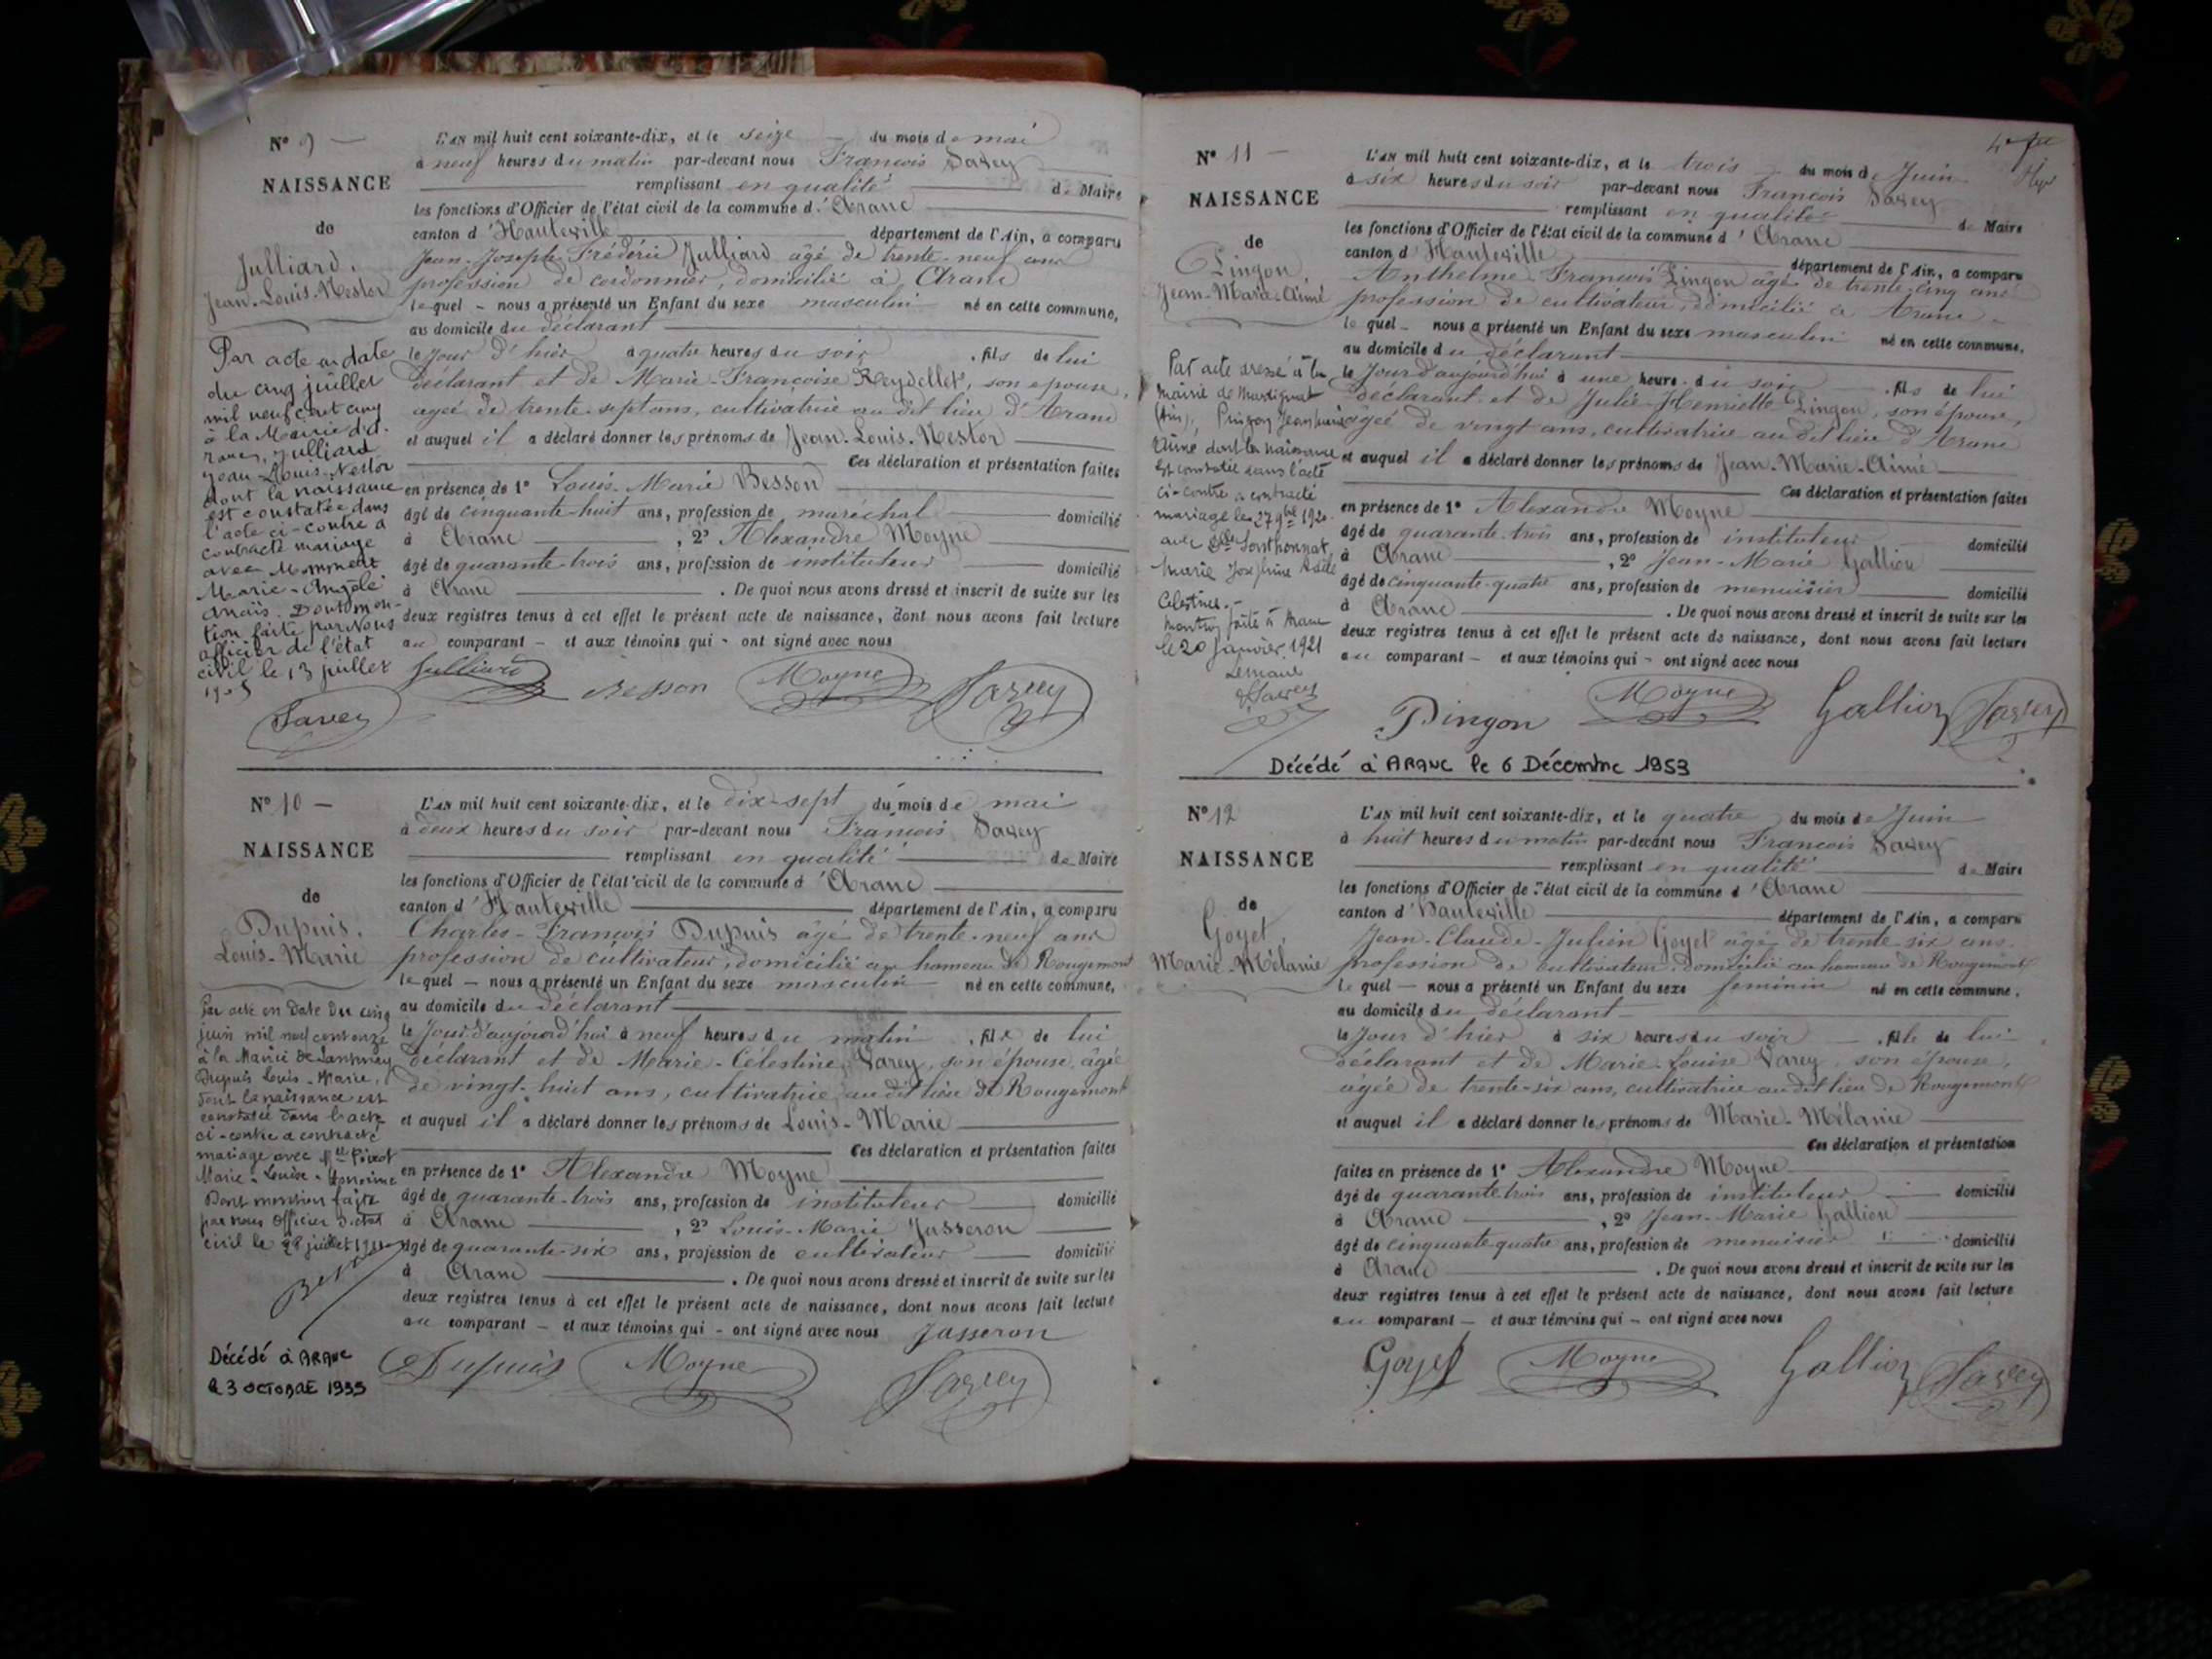 N° 9
NAISSANCE
de
Julliard,
Jean-Louis-Nestor
Par acte en date
du cinq juillet
mil neuf cent cinq
à la Mairie d'A-
ranc, Julliard
Jean-Louis-Nestor
dont la naissance
est constatée dans
l'acte ci-contre a
contracté mariage
avec
Marie-Angèle
Anaïs. Dont men-
tion faite par Nous
officier de l'état
civil le 13 juillet
1905
Savey
L'AN mil huit cent soixante-dix, et le seize du mois de mai
à neuf heures du matin par-devant nous François Savey
remplissant en qualité de Maire
les fonctions d'Officier de l'état civil de la commune d'Aranc
canton d'Hauteville département de l'Ain, a comparu
Jean-Joseph-Frédéric Julliard âgé de trente-neuf ans
profession de cordonnier, domicilié à Aranc
lequel - nous a présenté un Enfant du sexe masculin né en cette commune,
au domicile du déclarant
le jour d'hier à quatre heures du soir , fils de lui
déclarant et de Marie-Françoise Reydellet, son épouse,
agée de trente-sept ans, cultivatrice au dit lieu d'Aranc
et auquel il a déclaré donner les prénoms de Jean-Louis-Nestor
Ces déclaration et présentation faites
en présence de 1° Louis-Marie Besson
âgé de cinquante-huit ans, profession de maréchal domicilié
à Aranc , 2° Alexandre Moyne
âgé de quarante-trois ans, profession de instituteur domicilié
à Aranc . De quoi nous avons dressé et inscrit de suite sur les
deux registres tenus à cet effet le présent acte de naissance, dont nous avons fait lecture
au comparant - et aux témoins qui - ont signé avec nous
Julliard Besson Moyne Savey
N° 10
NAISSANCE
de
Dupuis,
Louis-Marie
Par acte en date du cinq
juin mil neuf cent onze
à la Mairie de
Dupuis Louis-Marie,
dont la naissance est
constatée dans l'acte
ci-contre a contracté
mariage avec Mlle
Marie-Louise-Honorine
Dont mention faite
par nous Officier d'état
civil le 28 juillet 1911
Décédé à ARANC
le 3 OCTOBRE 1955
L'AN mil huit cent soixante-dix, et le dix-sept du mois de mai
à deux heures du soir par-devant nous François Savey
remplissant en qualité de Maire
les fonctions d'Officier de l'état civil de la commune d'Aranc
canton d'Hauteville département de l'Ain, a comparu
Charles-François Dupuis âgé de trente-neuf ans
profession de cultivateur, domicilié au hameau de Rougemont
lequel - nous a présenté un Enfant du sexe masculin né en cette commune,
au domicile du déclarant
le jour d'aujourd'hui à neuf heures du matin , fils de lui
déclarant et de Marie-Célestine Varey, son épouse, âgée
de vingt-huit ans, cultivatrice au dit lieu de Rougemont
et auquel il a déclaré donner les prénoms de Louis-Marie
Ces déclaration et présentation faites
en présence de 1° Alexandre Moyne
âgé de quarante-trois ans, profession de instituteur domicilié
à Aranc , 2° Louis-Marie Jasseron
âgé de quarante-six ans, profession de cultivateur domicilié
à Aranc . De quoi nous avons dressé et inscrit de suite sur les
deux registres tenus à cet effet le présent acte de naissance, dont nous avons fait lecture
au comparant - et aux témoins qui - ont signé avec nous Jasseron
Dupuis Moyne Savey
N° 11
NAISSANCE
de
Pingon,
Jean-Marie-Aimé
Par acte dressé à la
mairie de Martignat
(Ain), Pingon Jean Marie
Aimé dont la naissance
est constatée dans l'acte
ci-contre a contracté
mariage le 27 9bre 1920
avec Dlle
Marie Joséphine
Célestine.-
Mention faite à Aranc
le 20 Janvier 1921
Le maire
Savey
L'AN mil huit cent soixante-dix, et le trois du mois de Juin
à six heures du soir par-devant nous François Savey
remplissant en qualité de Maire
les fonctions d'Officier de l'état civil de la commune d'Aranc
canton d'Hauteville département de l'Ain, a comparu
Anthelme-François Pingon âgé de trente-cinq ans
profession de cultivateur, domicilié à Aranc
lequel - nous a présenté un Enfant du sexe masculin né en cette commune,
au domicile du déclarant
le Jour d'aujourd'hui à une heure du soir , fils de lui
déclarant et de Julie-Henriette Pingon, son épouse,
agée de vingt ans, cultivatrice au dit lieu d'Aranc
et auquel il a déclaré donner les prénoms de Jean-Marie-Aimé
Ces déclaration et présentation faites
en présence de 1° Alexandre Moyne
âgé de quarante-trois ans, profession de instituteur domicilié
à Aranc , 2° Jean-Marie Gallion
âgé de cinquante-quatre ans, profession de menuisier domicilié
à Aranc . De quoi nous avons dressé et inscrit de suite sur les
deux registres tenus à cet effet le présent acte de naissance, dont nous avons fait lecture
au comparant - et aux témoins qui - ont signé avec nous
Pingon Moyne Gallion Savey
Décédé à ARANC le 6 Décembre 1953
N° 12
NAISSANCE
de
Goyet,
Marie-Mélanie
L'AN mil huit cent soixante-dix, et le quatre du mois de Juin
à huit heures du matin par-devant nous François Savey
remplissant en qualité de Maire
les fonctions d'Officier de l'état civil de la commune d'Aranc
canton d'Hauteville département de l'Ain, a comparu
Jean-Claude-Julien Goyet âgé de trente-six ans
profession de cultivateur, domicilié au hameau de Rougemont
lequel - nous a présenté un Enfant du sexe féminin né en cette commune,
au domicile du déclarant
le Jour d'hier à six heures du soir , fille de lui
déclarant et de Marie-Louise Varey, son épouse,
agée de trente-six ans, cultivatrice au dit lieu de Rougemont
et auquel il a déclaré donner les prénoms de Marie-Mélanie
Ces déclaration et présentation
faites en présence de 1° Alexandre Moyne
âgé de quarante trois ans, profession de instituteur domicilié
à Aranc , 2° Jean-Marie Gallion
âgé de cinquante quatre ans, profession de menuisier domicilié
à Aranc . De quoi nous avons dressé et inscrit de suite sur les
deux registres tenus à cet effet le présent acte de naissance, dont nous avons fait lecture
au comparant - et aux témoins qui - ont signé avec nous
Goyet Moyne Gallion Savey